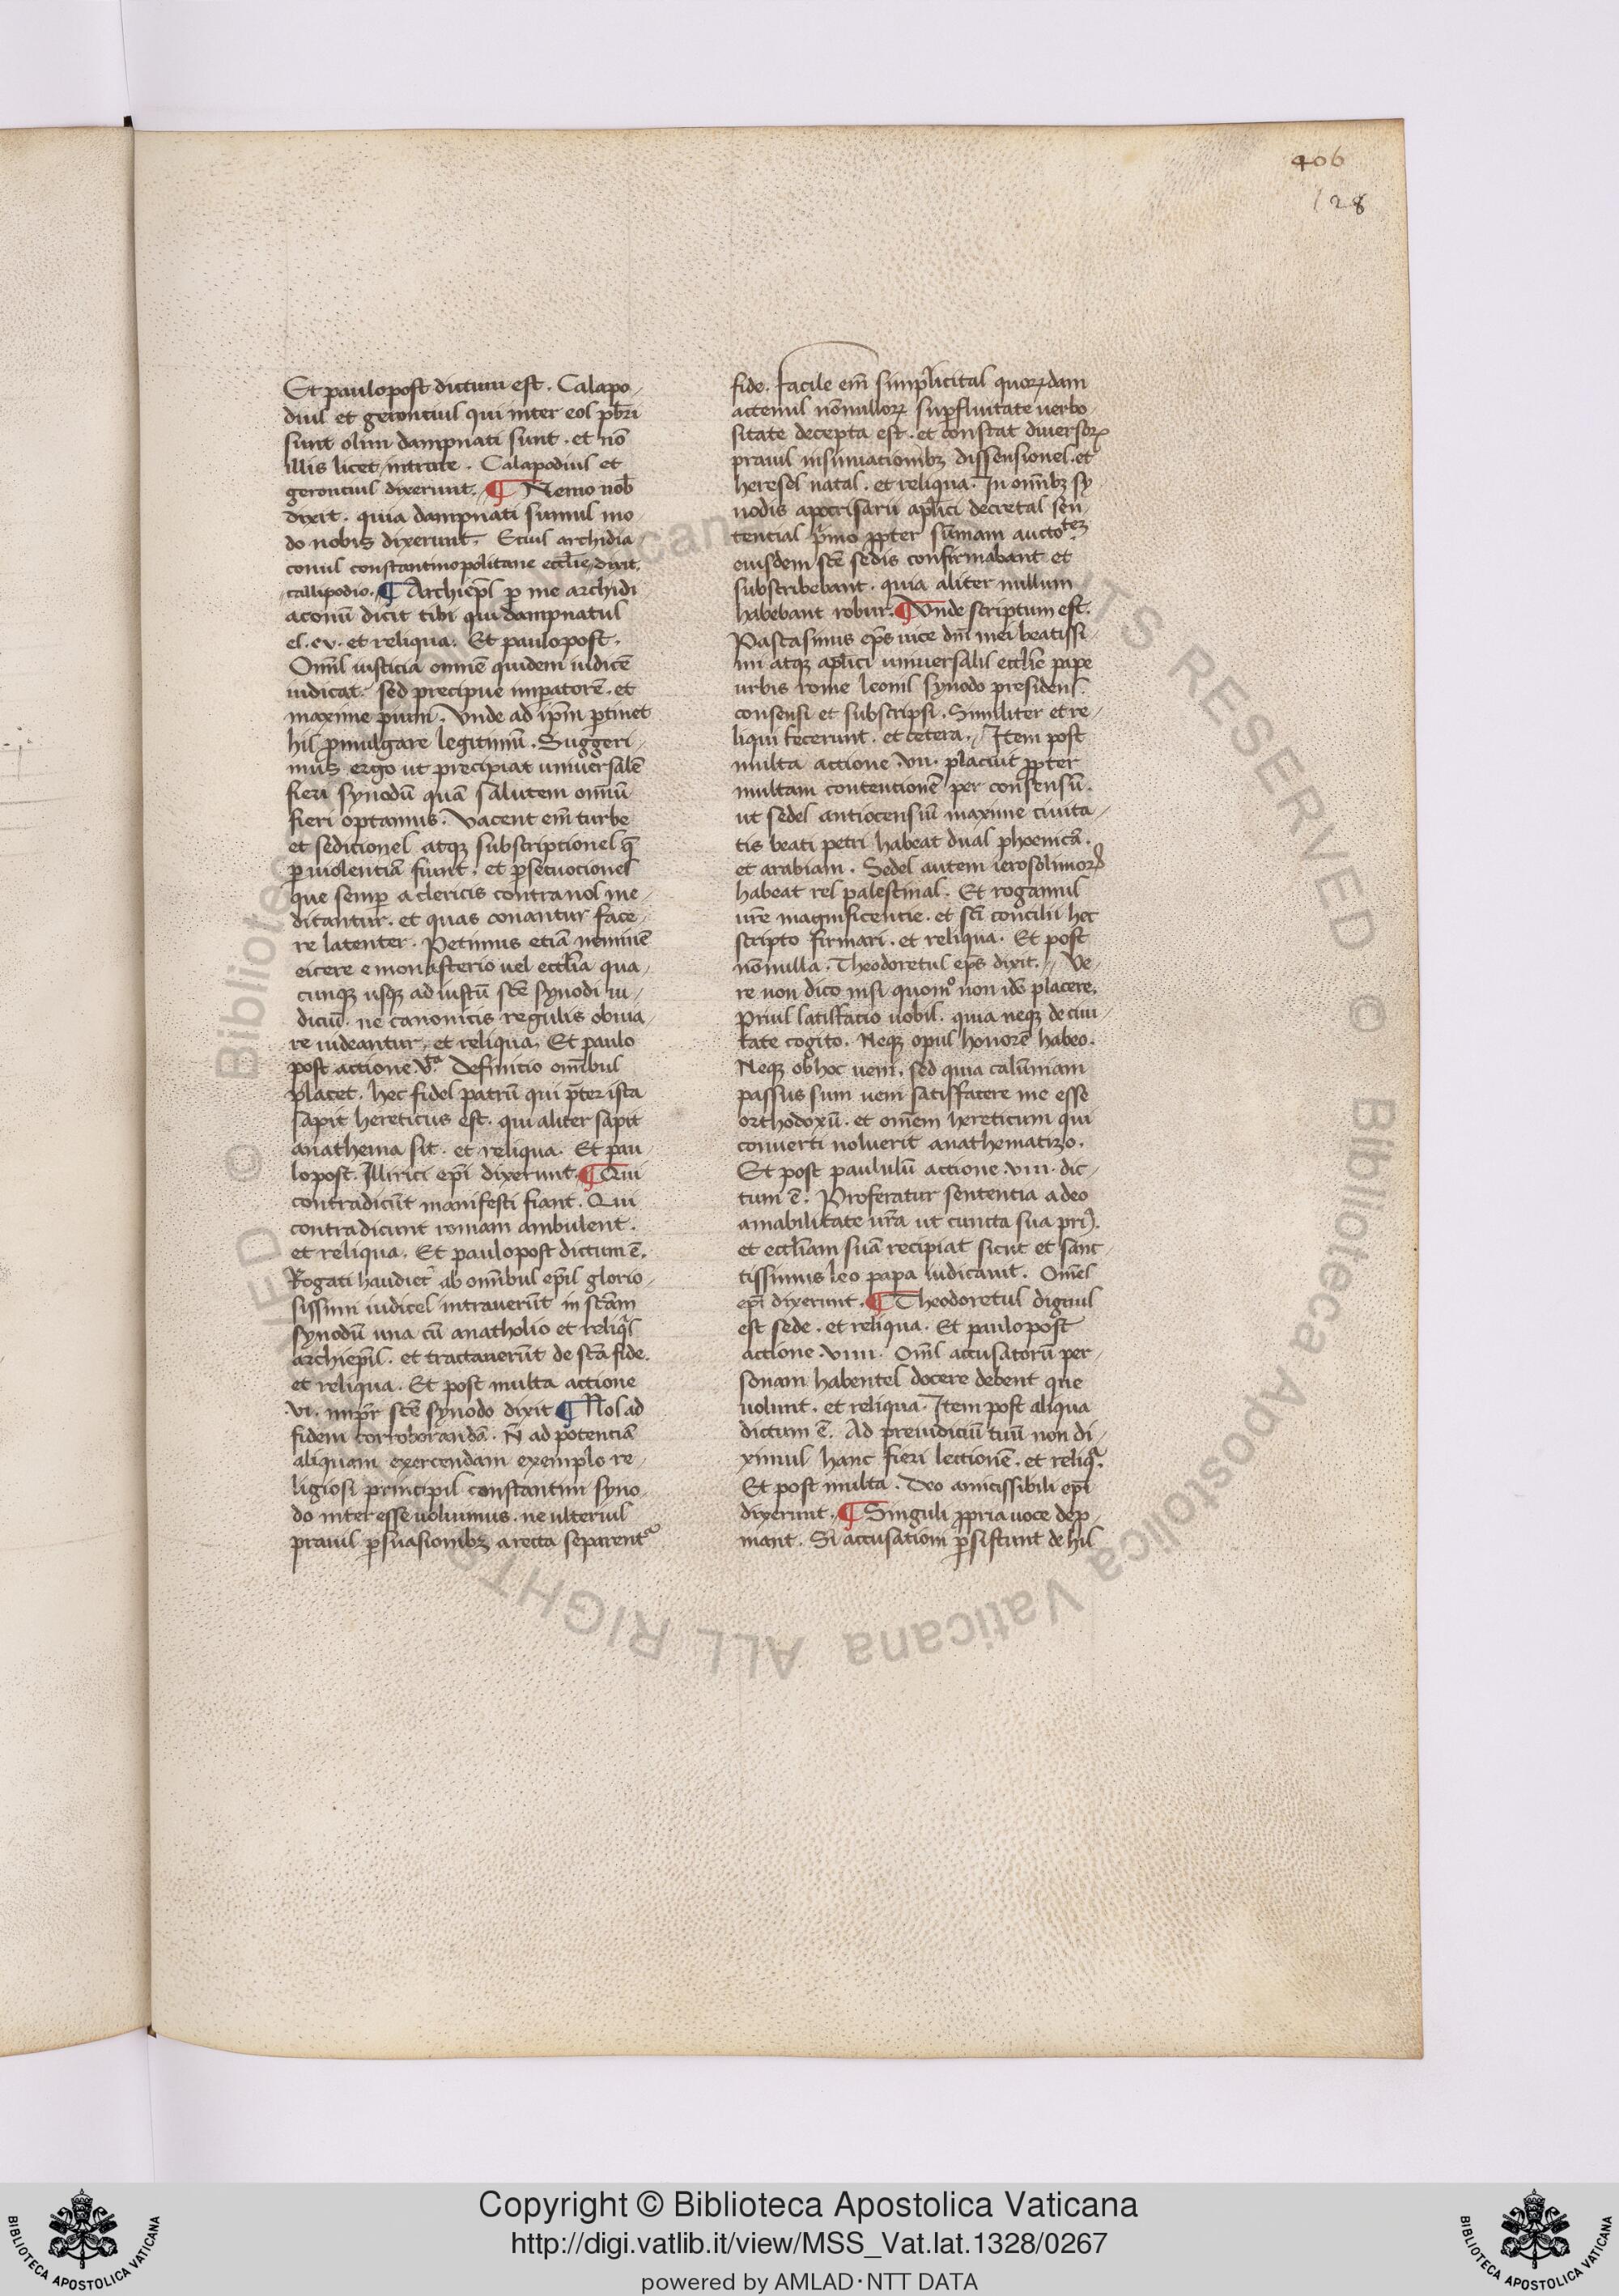 406
128
Et paulopost dictum est. Calapo-
dius et geroncius qui inter eos pb̄ri
sunt olim dampnati sunt. et nō
illis licet intrare. Calapodius et
geroncius dixerunt. ¶ Nemo nob̄
dixit. quia dampnati sumus mo-
do nobis dixerunt. Ecius archidia-
conus constantinopolitane eccl̄ie dixit.
callipodio. ¶ Archiep̄s ꝑ me archidi
aconū dicit tibi qui dampnatus
es. ev. et reliqua. Et paulopost.
Om̄s iusticia omnē quidem iudicē
iudicat. sed precipue imꝑatorē. et
maxime pium. Vnde ad ip̄m ꝑtinet
his ꝓmulgare legitimū. Suggeri-
mus ergo ut precipiat uniuersalē
fieri synodū quā salutem omniū
fieri optamus. Vacent em̄ turbe
et sediciones atqꝫ subscriptiones q̄
ꝑ uiolentiā fiunt. et ꝑsecuciones
que semꝑ a clericis contra nos me-
ditantur. et quas conantur face-
re latenter. Petimus etiā neminē
eicere e monasterio uel eccl̄ia qua-
cunqꝫ usqꝫ ad iustū sc̄e synodi iu-
diciū. ne canonicis regulis obuia-
re uideantur. et reliqua. Et paulo
post actione .vta. Definitio om̄ibus
placet. hec fides patrū qui p̄ter ista
sapit hereticus est. qui aliter sapit
anathema sit. et reliqua. Et pau
lopost. Illirici ep̄i dixerunt. ¶ Qui
contradicūt manifesti fiant. Qui
contradicunt romam ambulent.
et reliqua. Et paulopost dictum ē.
Rogati ab om̄ibus ep̄is glorio-
sissimi iudices intrauerūt in sc̄am
synodū una cū anatholio et reliq̄s
archiep̄is. et tractauerūt de sc̄a fide.
et reliqua. Et post multa actione
.vi. imp̄r sc̄e synodo dixit ¶ Nos ad
fidem corroborandā. N̄ ad potenciā
aliquam exercendam exemplo re-
ligiosi principis constantini syno-
do interesse uoluimus. ne ulterius
prauis ꝑsuasionibꝫ a recta separent᷑
fide. facile em̄ simplicitas quorꝝdam
actenus nōnullorꝝ suꝑfluitate uerbo
sitate decepta est. et constat diuersorꝝ
prauis insinuacionibꝫ dissensiones. et
hereses natas. et reliqua. In om̄ibꝫ sy-
nodis apocrisarii apl̄ici decretal sen
tencias p̄mo ꝓpter sūmam auctotem
eiusdem sc̄e sedis confirmabant et
subscribebant. quia aliter nullum
habebant robur. ¶ Vnde scriptum est.
Pascasinus ep̄s uice dn̄i mei beatissi-
mi atqꝫ apl̄ici uniuersalis eccl̄ie pape
urbis rome leonis synodo presidens
consensi et subscripsi. Similiter et re-
liqui fecerunt. et cetera. Item post
multa actione .vii. placuit ꝓpter
multam contentionē per consensū.
ut sedes antiocensiū maxime ciuita-
tis beati petri habeat duas phoenicā.
et arabiam. Sedes autem ierosolimorꝝ
habeat res palestinas. Et rogamus
ur̄e magnificentie. et sc̄i concilii hec
scripto firmari. et reliqua. Et post
nōnulla. Theodoretus ep̄s dixit. Ve-
re non dico nisi quomo non placere.
Prius satisfacio uobis. quia neqꝫ de ciui-
tate cogito. Neqꝫ opus honorē habeo.
Neqꝫ ob hoc ueni. sed quia calūniam
passus sum ueni satisfacere me esse
orthodoxū. et omēm hereticum qui
conuerti noluerit anathematizo.
Et post paululū actione .viii. dic-
tum ē. Proferatur sententia a deo
amabilitate ur̄a ut cuncta sua
et eccl̄iam suā recipiat sicut et sanc-
tissimus leo papa iudicauit. Om̄es
ep̄i dixerunt. ¶ Theodoretus dignus
est sede. et reliqua. Et paulopost
actione .viiii. Om̄s accusatorū per-
sonam habentes docere debent que
uolunt. et reliqua. Item post aliqua
dictum ē. Ad preiudiciū tuū non di-
ximus hanc fieri lectionē. et reliq̄.
Et post multa. Deo amicissibili ep̄i
dixerunt. ¶ Singuli ꝓpria uoce dep̄-
mant. Si accusationi ꝑsistunt de his
Copyright © Biblioteca Apostolica Vaticana
http://digi.vatlib.it/view/MSS_Vat.lat.1328/0267
powered by AMLAD·NTT DATA
BIBLIOTECA APOSTOLICA VATICANA
BIBLIOTECA APOSTOLICA VATICANA